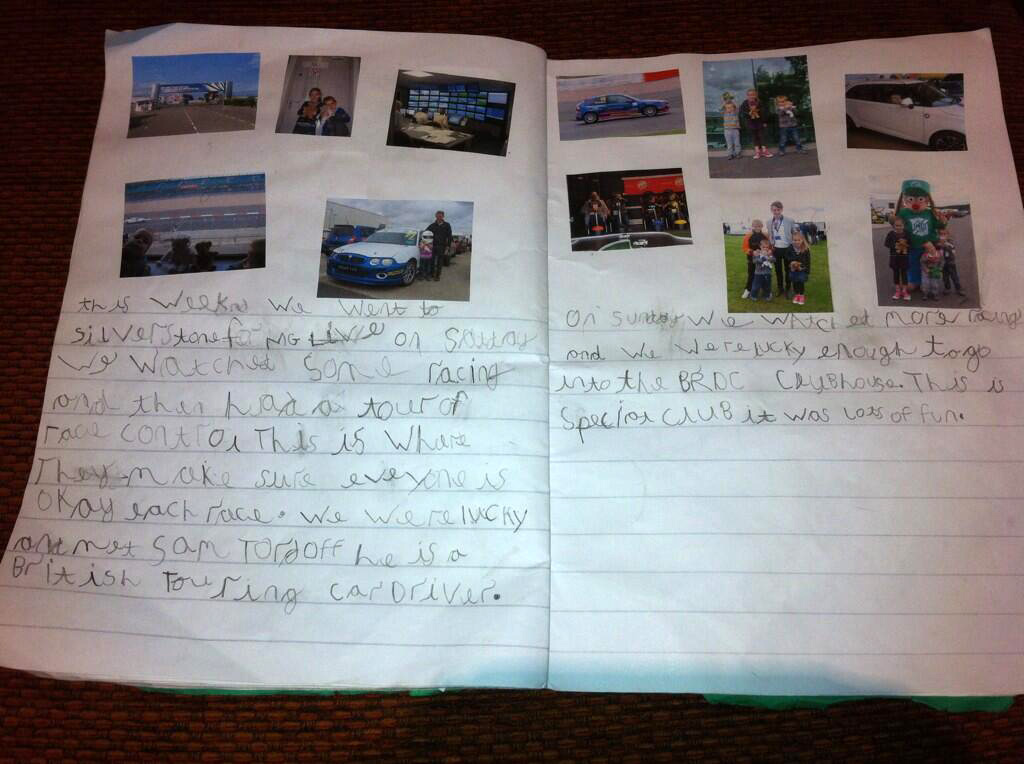 this weeknd we went to
silverstone for MG Live on Sattray
we watched some racing
and then had a tour of
race control This is where
They make sure everyone is
okay each race. We were lucky
and met Sam Tordoff he is a
British Touring car Driver.
On sunday we watched more racing
and we were lucky enough to go
into the BRDC Clubhouse. This is
Special CLUB it was lots of fun.